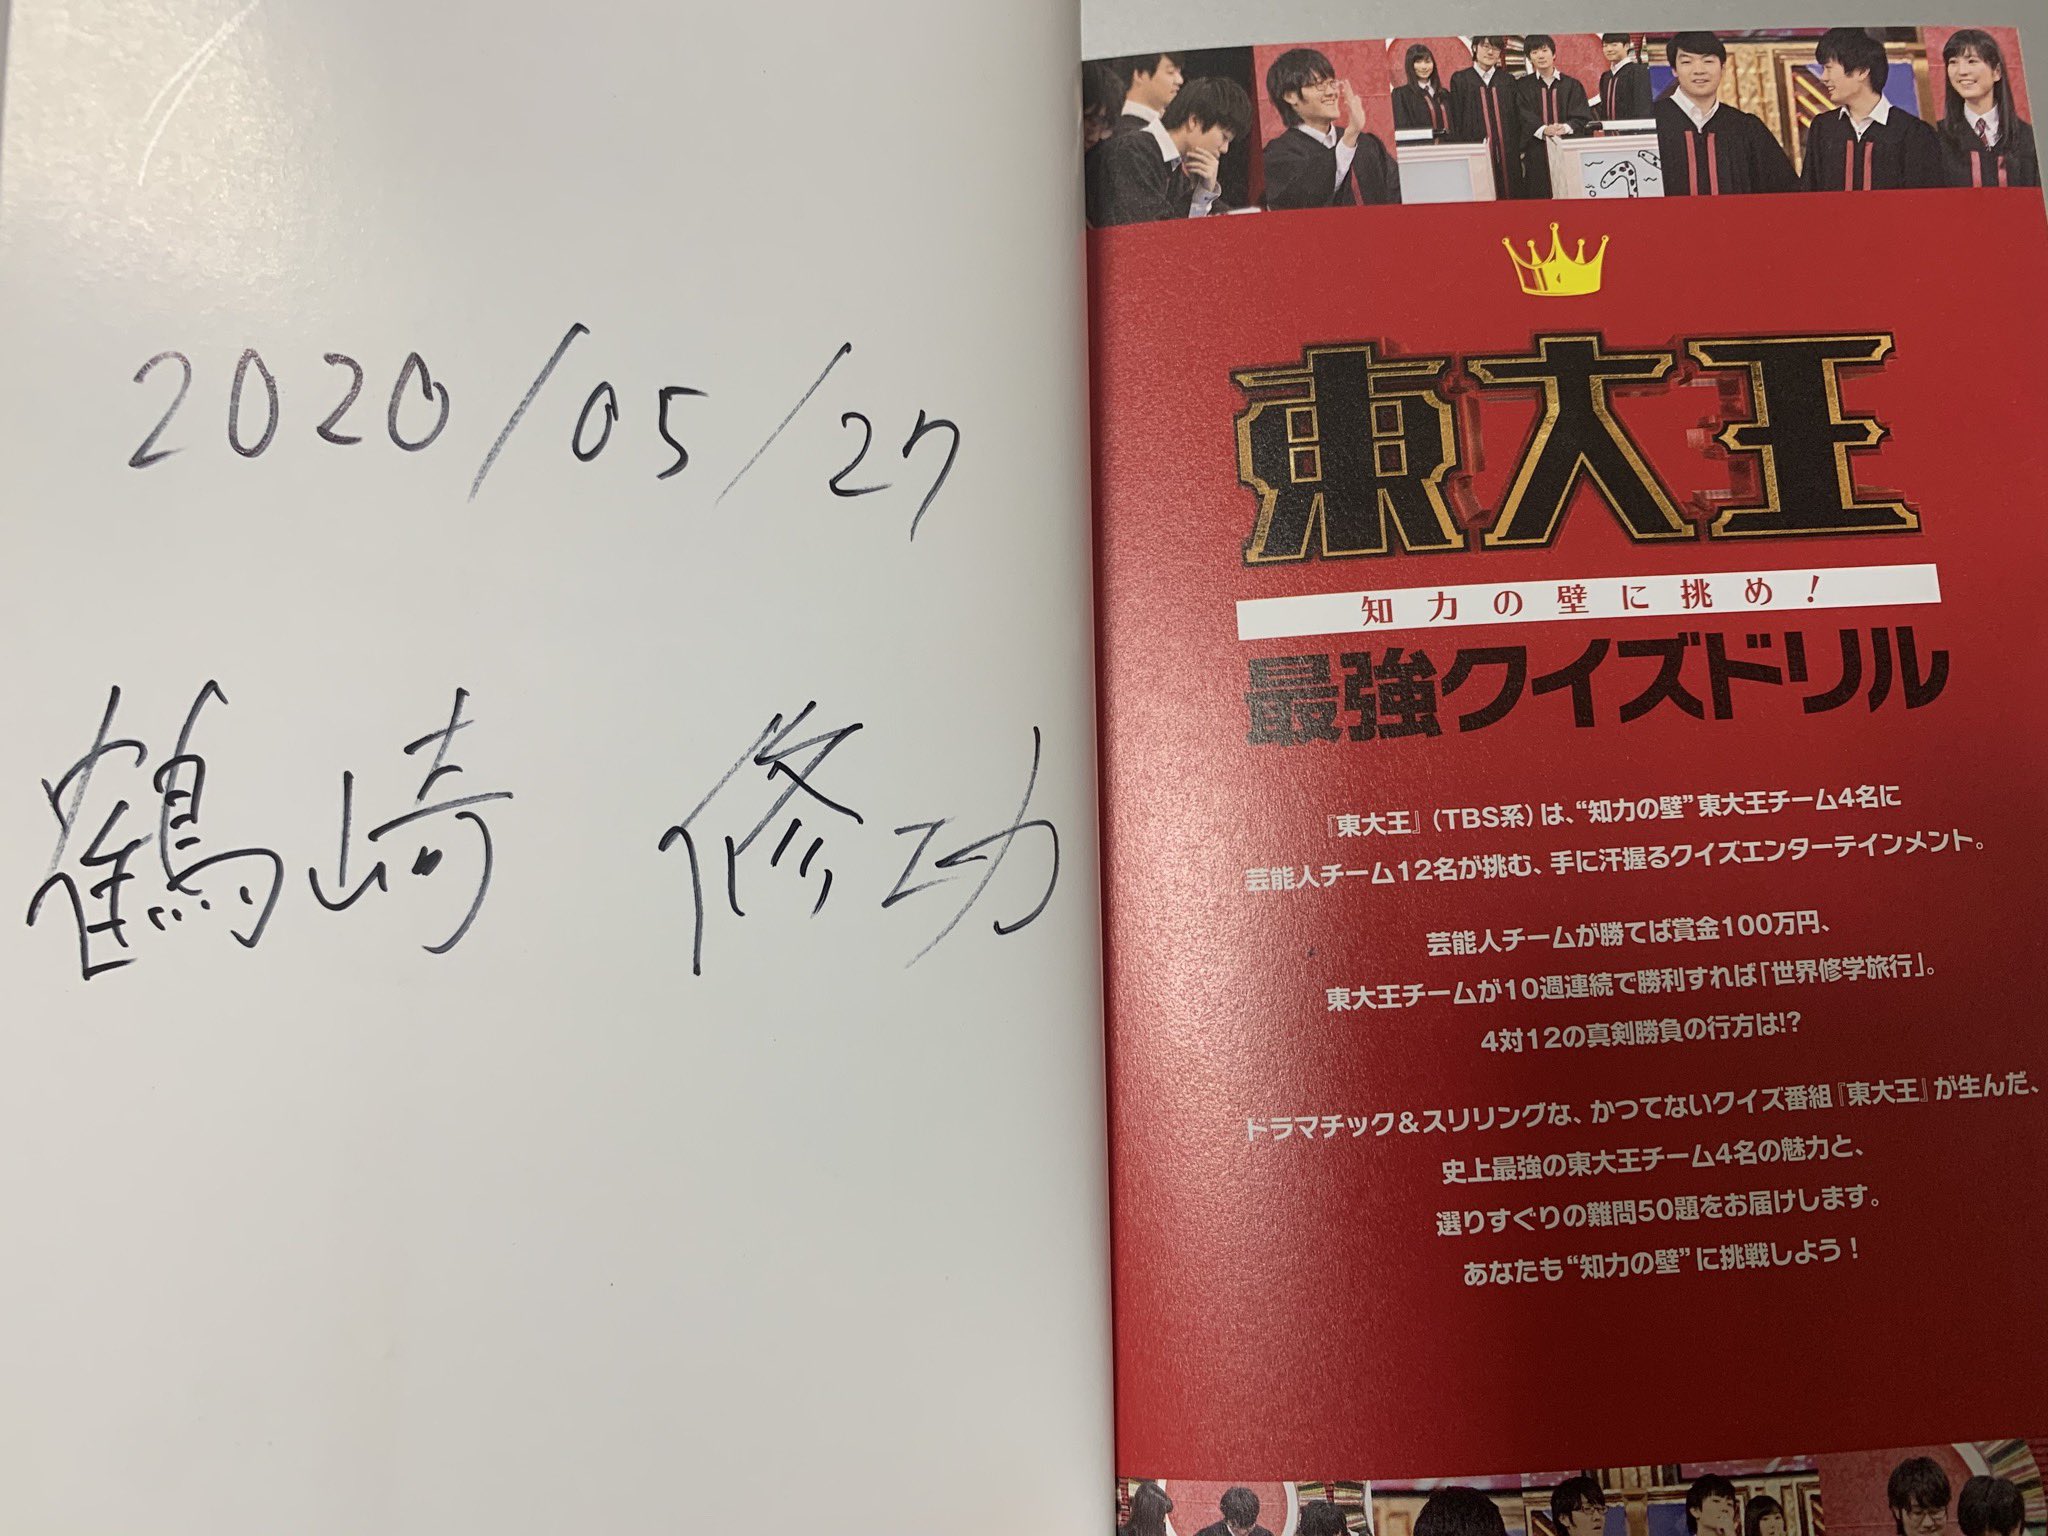 2020/05/27
鶴崎 修功
東大王
知力の壁に挑め!
最強クイズドリル
『東大王』(TBS系)は、“知力の壁”東大王チーム4名に
芸能人チーム12名が挑む、手に汗握るクイズエンターテインメント。
芸能人チームが勝てば賞金100万円、
東大王チームが10週連続で勝利すれば「世界修学旅行」。
4対12の真剣勝負の行方は!?
ドラマチック&スリリングな、かつてないクイズ番組『東大王』が生んだ、
史上最強の東大王チーム4名の魅力と、
選りすぐりの難問50題をお届けします。
あなたも“知力の壁”に挑戦しよう!